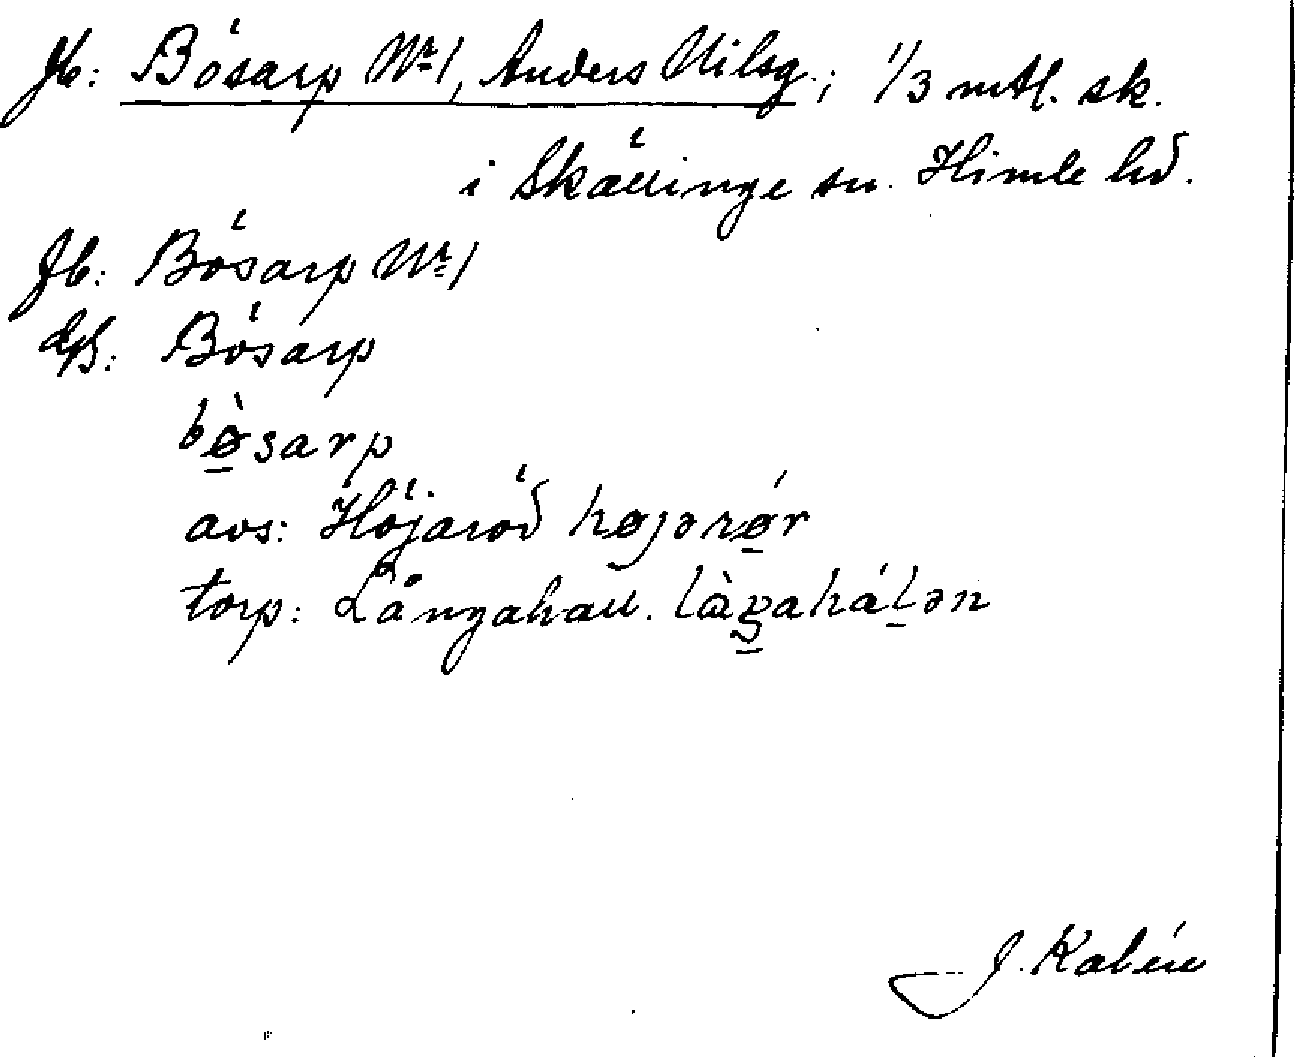 Jb: Bösarp Nr 1, Anders Nilsg.; 1/3 mtl. sk.
i Skällinge sn. Himle hd.
Jb: Bösarp Nr 1
Bösarp
bø̀sarp
avs: Höjaröd højərǿr
torp: Långahall. làŋahálən
J. Kalén